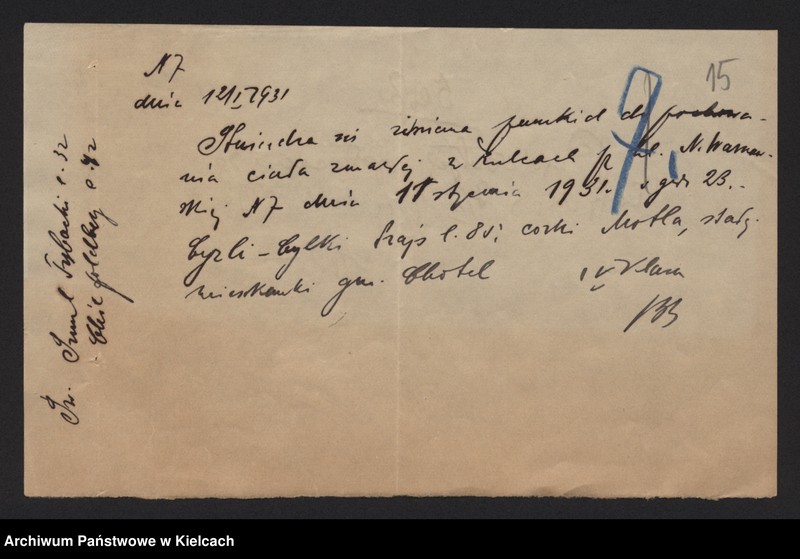 N 7
15
dnia 12/I 1931
7.
Stwierdza się zmiana do pochowa-
nia ciała zmarłej w Kielcach p. ul. N. Warszaw-
skiej N 7 dnia 11 stycznia 1931. o godz 23.-
Cyrli-Cylki Frajs l. 80, córki Motla, stałej
mieszkanki gm. Chotel IV klasa
Św. Szmul Rybacki l. 32
Chil Goldberg l. 42
Archiwum Państwowe w Kielcach